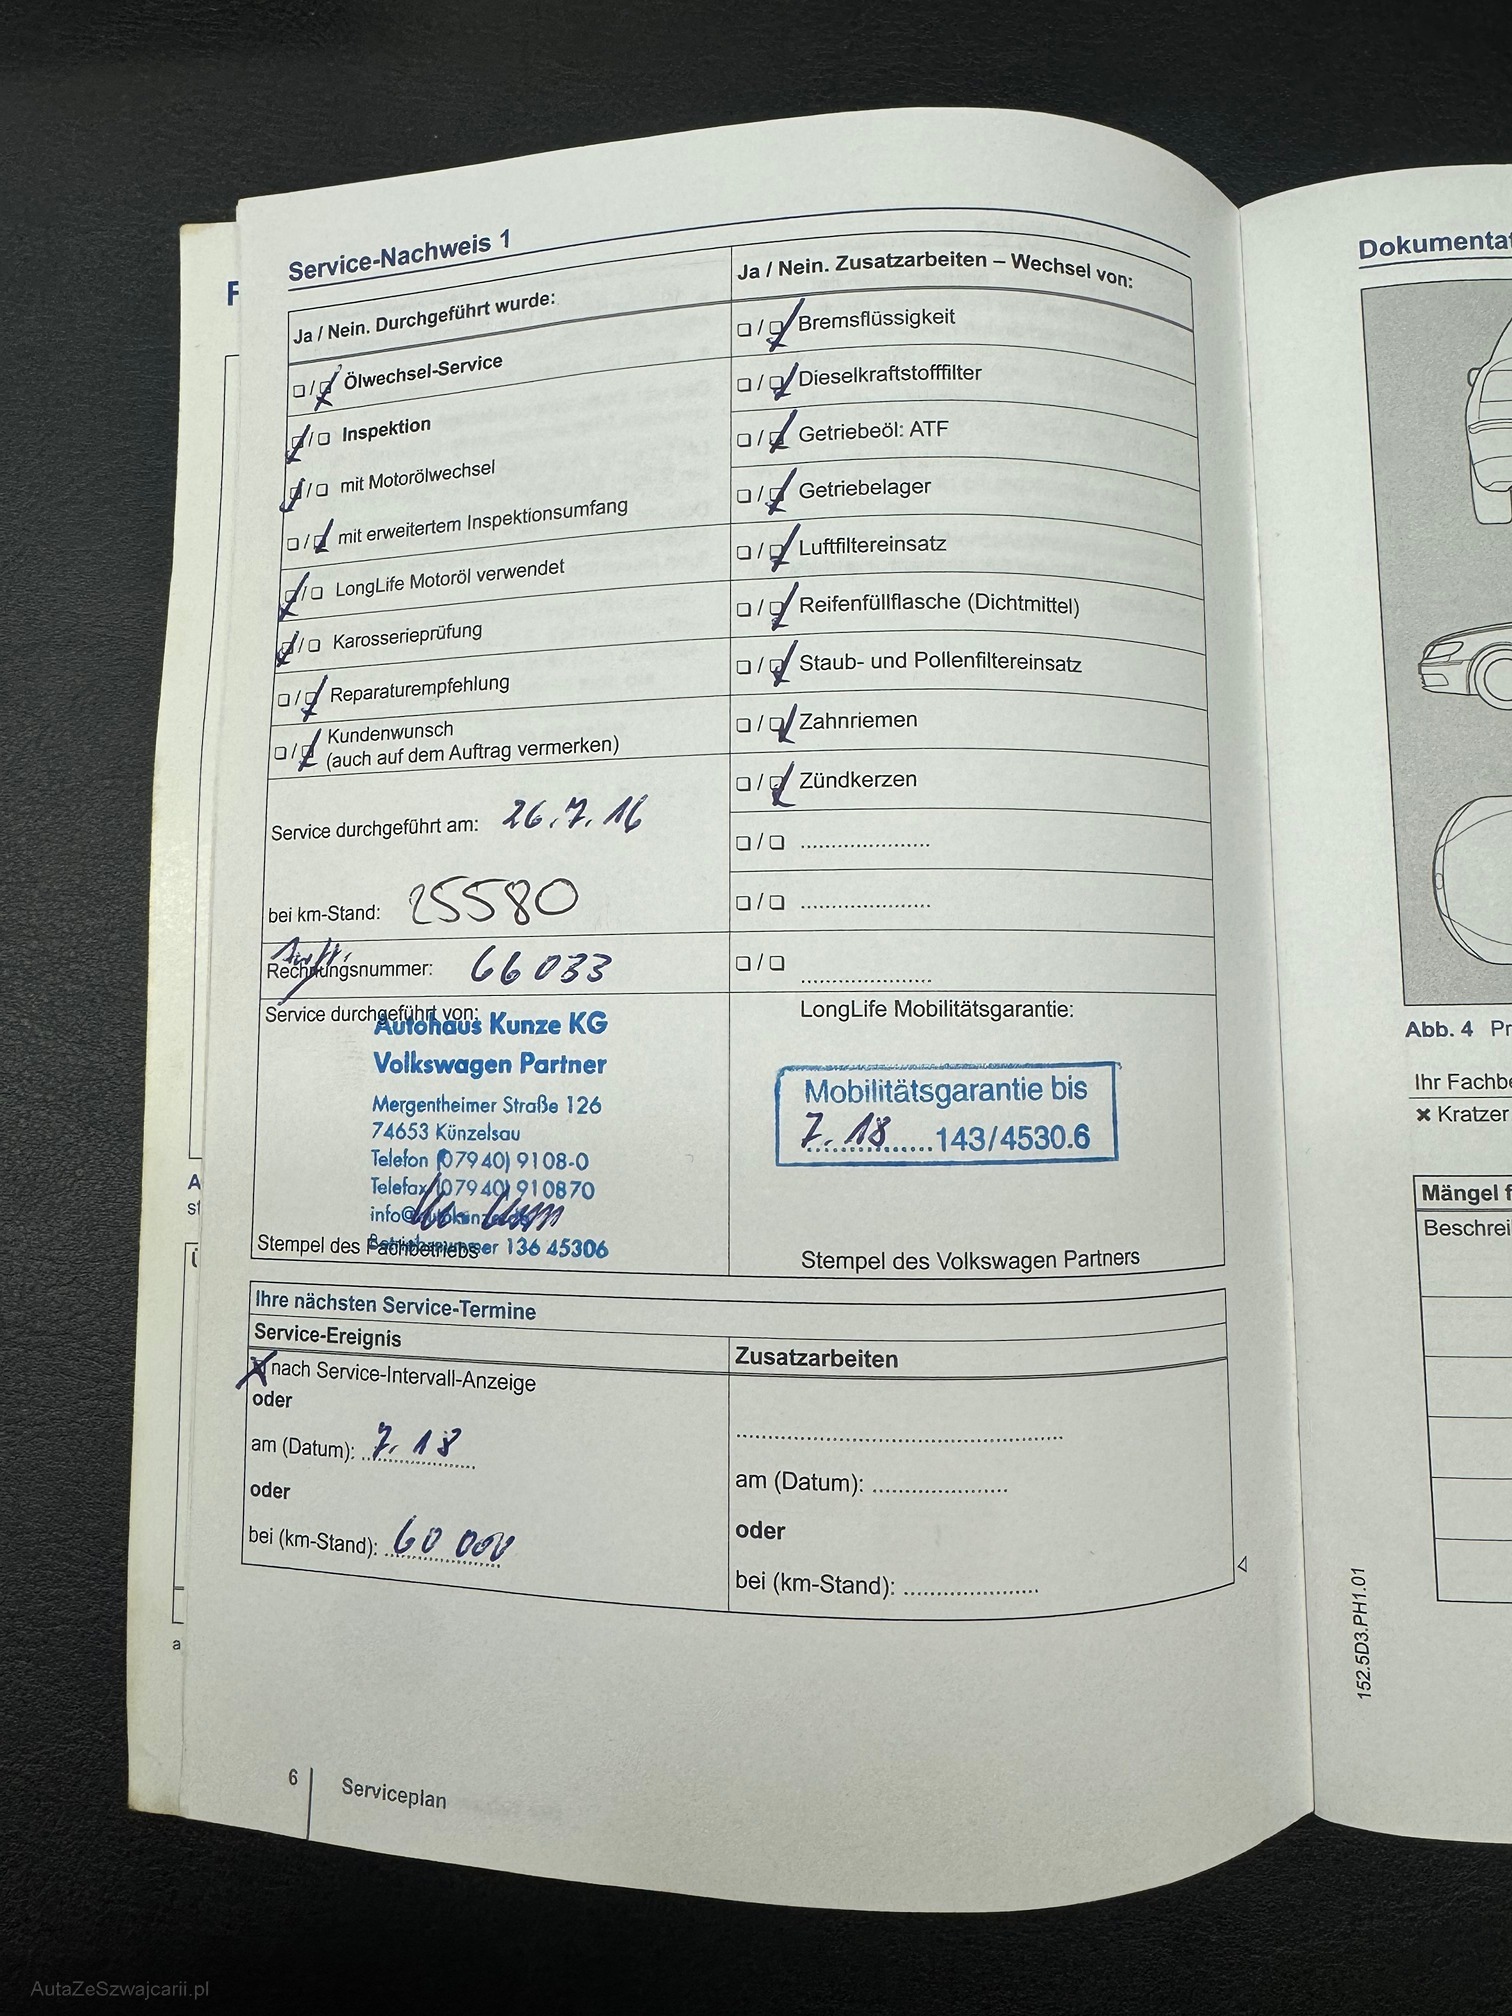 Service-Nachweis 1
Ja / Nein. Durchgeführt wurde:
❏ / ❏ Ölwechsel-Service
❏ / ❏ Inspektion
❏ / ❏ mit Motorölwechsel
❏ / ❏ mit erweitertem Inspektionsumfang
❏ / ❏ LongLife Motoröl verwendet
❏ / ❏ Karosserieprüfung
❏ / ❏ Reparaturempfehlung
❏ / ❏ Kundenwunsch
(auch auf dem Auftrag vermerken)
Service durchgeführt am: 26.7.16
bei km-Stand: 25580
Rechnungsnummer: 66033
Service durchgeführt von:
Autohaus Kunze KG
Volkswagen Partner
Mergentheimer Straße 126
74653 Künzelsau
Telefon (07940) 9108-0
Telefax (07940) 910870
Betriebsnummer 136 45306
Stempel des Fachbetriebs
Ja / Nein. Zusatzarbeiten – Wechsel von:
❏ / ❏ Bremsflüssigkeit
❏ / ❏ Dieselkraftstofffilter
❏ / ❏ Getriebeöl: ATF
❏ / ❏ Getriebelager
❏ / ❏ Luftfiltereinsatz
❏ / ❏ Reifenfüllflasche (Dichtmittel)
❏ / ❏ Staub- und Pollenfiltereinsatz
❏ / ❏ Zahnriemen
❏ / ❏ Zündkerzen
❏ / ❏ ......................
❏ / ❏ ......................
❏ / ❏ ......................
LongLife Mobilitätsgarantie:
Mobilitätsgarantie bis
7.18......143/4530.6
Stempel des Volkswagen Partners
Ihre nächsten Service-Termine
Service-Ereignis
nach Service-Intervall-Anzeige
oder
am (Datum): 7.18
oder
bei (km-Stand): 60 000
Zusatzarbeiten
......................................................
am (Datum): ......................
oder
bei (km-Stand): ......................
6
Serviceplan
Dokumentat
Abb. 4 Pr
Ihr Fachbe
✖ Kratzer
Mängel f
Beschrei
152.5D3.PH1.01
AutaZeSzwajcarii.pl